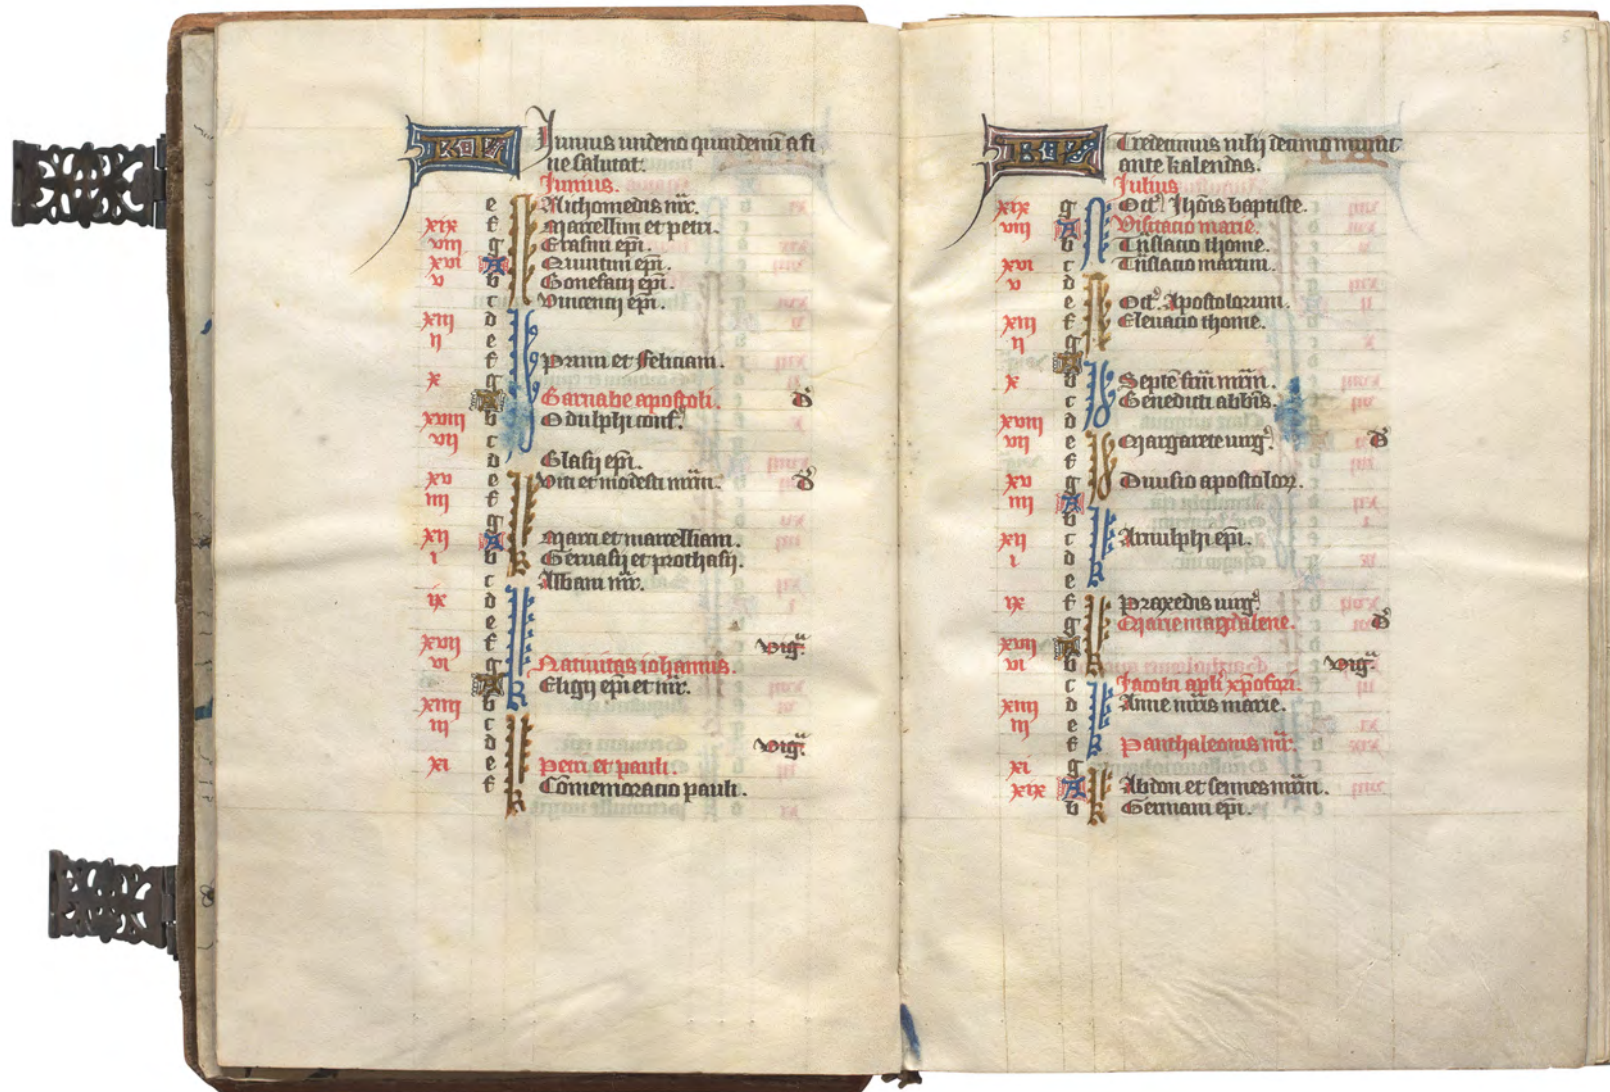 KL Junius undeno quindenū a fi
ne salutat.
Junius.
e Nichomedis mr̄.
xix f Marcellini et petri.
viii g Erasmi epī.
xvi A Quirini epī.
v b Bonefacij epī.
c Vincentij epī.
xiii d
ij e
f Primi et feliciani.
x g
A Barnabe apostoli.
xviii b Odulphi conf.
vij c
d Blasij epī.
xv e Viti et modesti mr̄m.
iiij f
g
xij A Marci et marcelliani.
i b Geruasij et prothasij.
c Albani mr̄.
ix d
e
xvij f vigª
vi g Natiuitas iohannis.
A Eligij epī et mr̄.
xiiij b
iij c
d vigª
xi e Petri et pauli.
f Cōmemoracio pauli.
KL Tredecimus
ante kalendas.
Julius
xix g Octº Jhōis baptiste.
viij A Visitacio marie.
b Trāslacio thome.
xvi c Trāslacio martini.
v d
e Octº Apostolorum.
xiij f Eleuacio thome.
ij g
A
x b Septē frm̄ mr̄m.
c Benedicti abbīs.
xviij d
vij e Margarete uirg
f
xv g Diuisio apostolorꝝ.
iiij A
b
xij c Arnulphi epī.
i d
e
ix f Praxedis uirg
g Marie magdalene.
xvij A
vi b vigª
c Jacobi apl̄i xp̄ofori.
xiiij d Anne mr̄is marie.
iij e
f Panthaleonis mr̄.
xi g
xix A Abdon et sennes mr̄m.
b Germani epī.